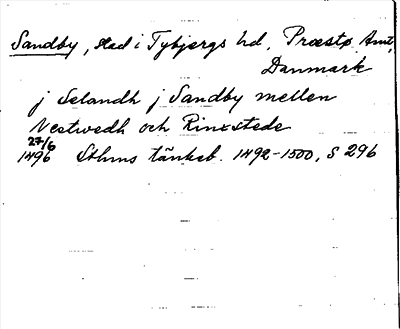 Sandby, stad i Tybjergs hd, Præstø Amt,
Danmark
j Selandh j Sandby mellen
Nestwedh och Rinxstede
27/6
1496 Sthms tänkeb. 1492-1500, S 296